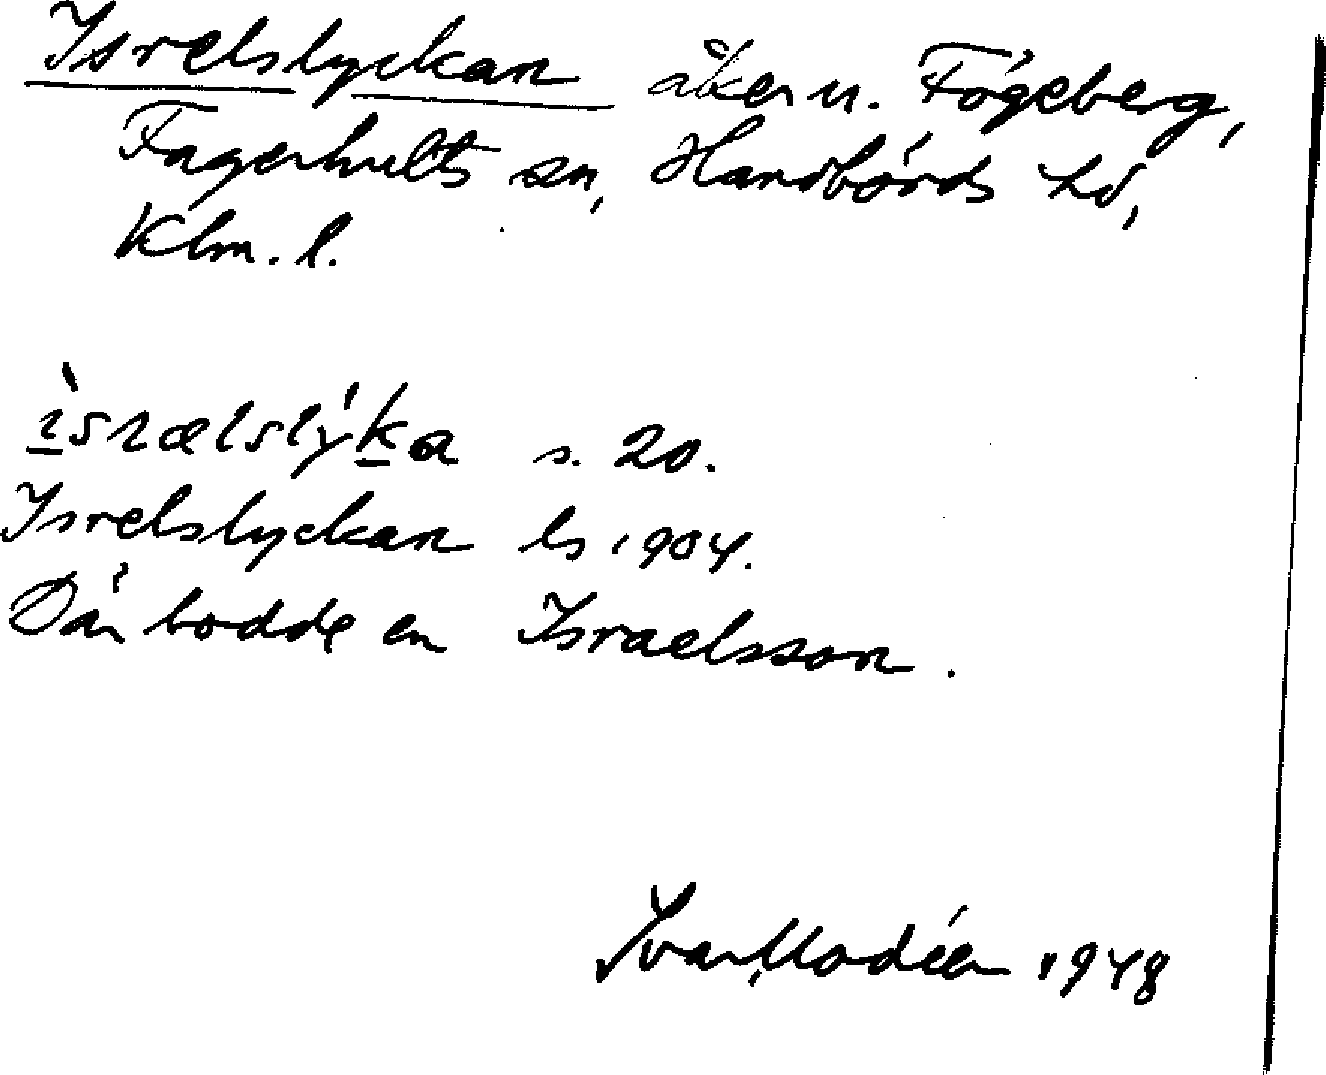 Isrelslyckan åker u. Fògeberg,
Fagerhults sn, Handbörds hd,
Klm. l.
ìsrælslýka s. 20.
Isrelslyckan ls 1904.
Där bodde en Israelsson.
Ivar Modéer 1948